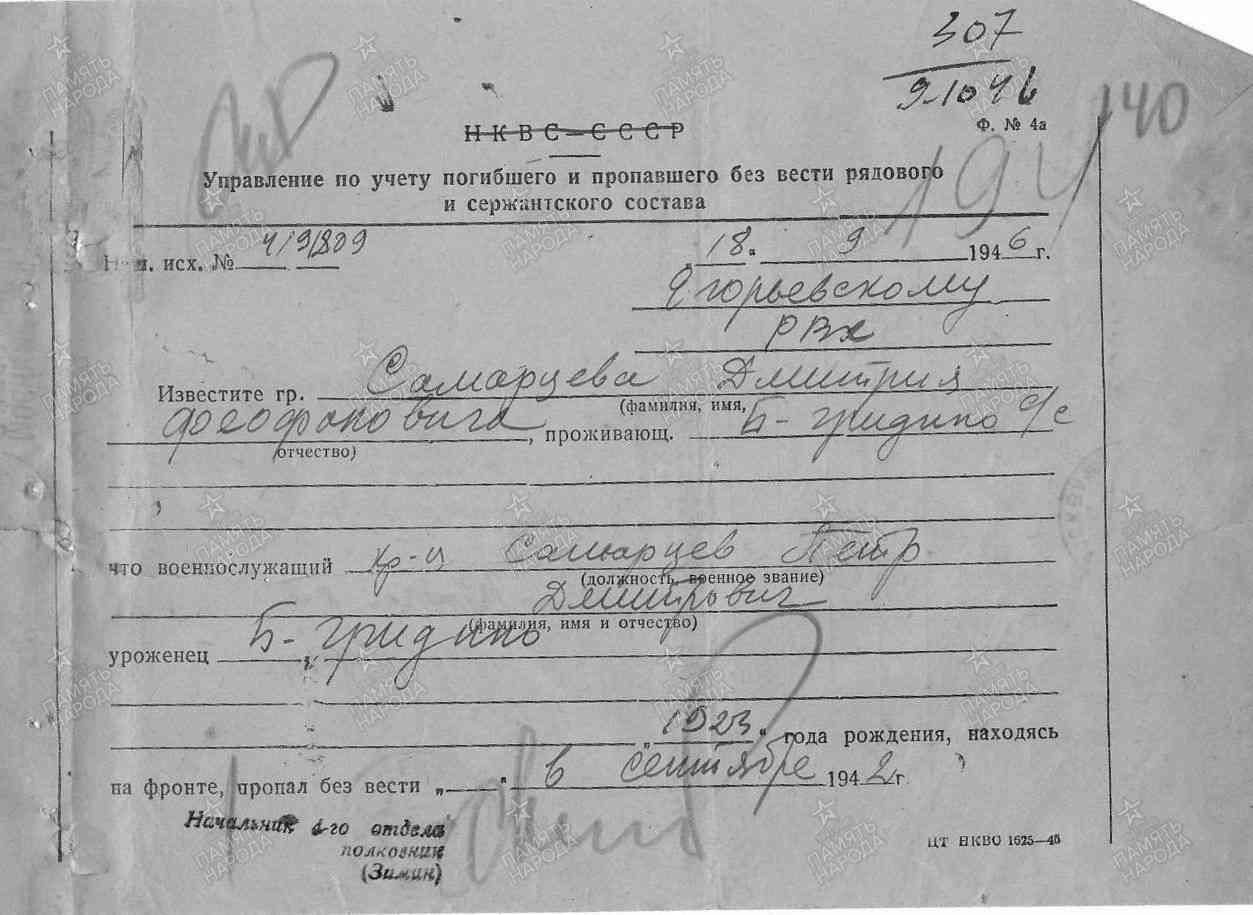 307
9.1046
140
Н К В С – С С С Р
Ф. № 4а
194
Управление по учету погибшего и пропавшего без вести рядового
и сержантского состава
исх. № 4/91809
„18" 9 1946 г.
Егорьевскому
РВК
Известите гр. Самарцева Дмитрия
(фамилия, имя,
Феофановича, проживающ. Б-Гридино с/с
отчество)
что военнослужащий кр-ц Самарцев Петр
(должность, военное звание)
Дмитрович
(фамилия, имя и отчество)
уроженец Б-Гридино
„1923" года рождения, находясь
на фронте, пропал без вести „ " в сентябре 1942 г.
Начальник 4-го отдела
полковник
(Зимин)
ЦТ НКВО 1625—45
ПАМЯТЬ НАРОДА